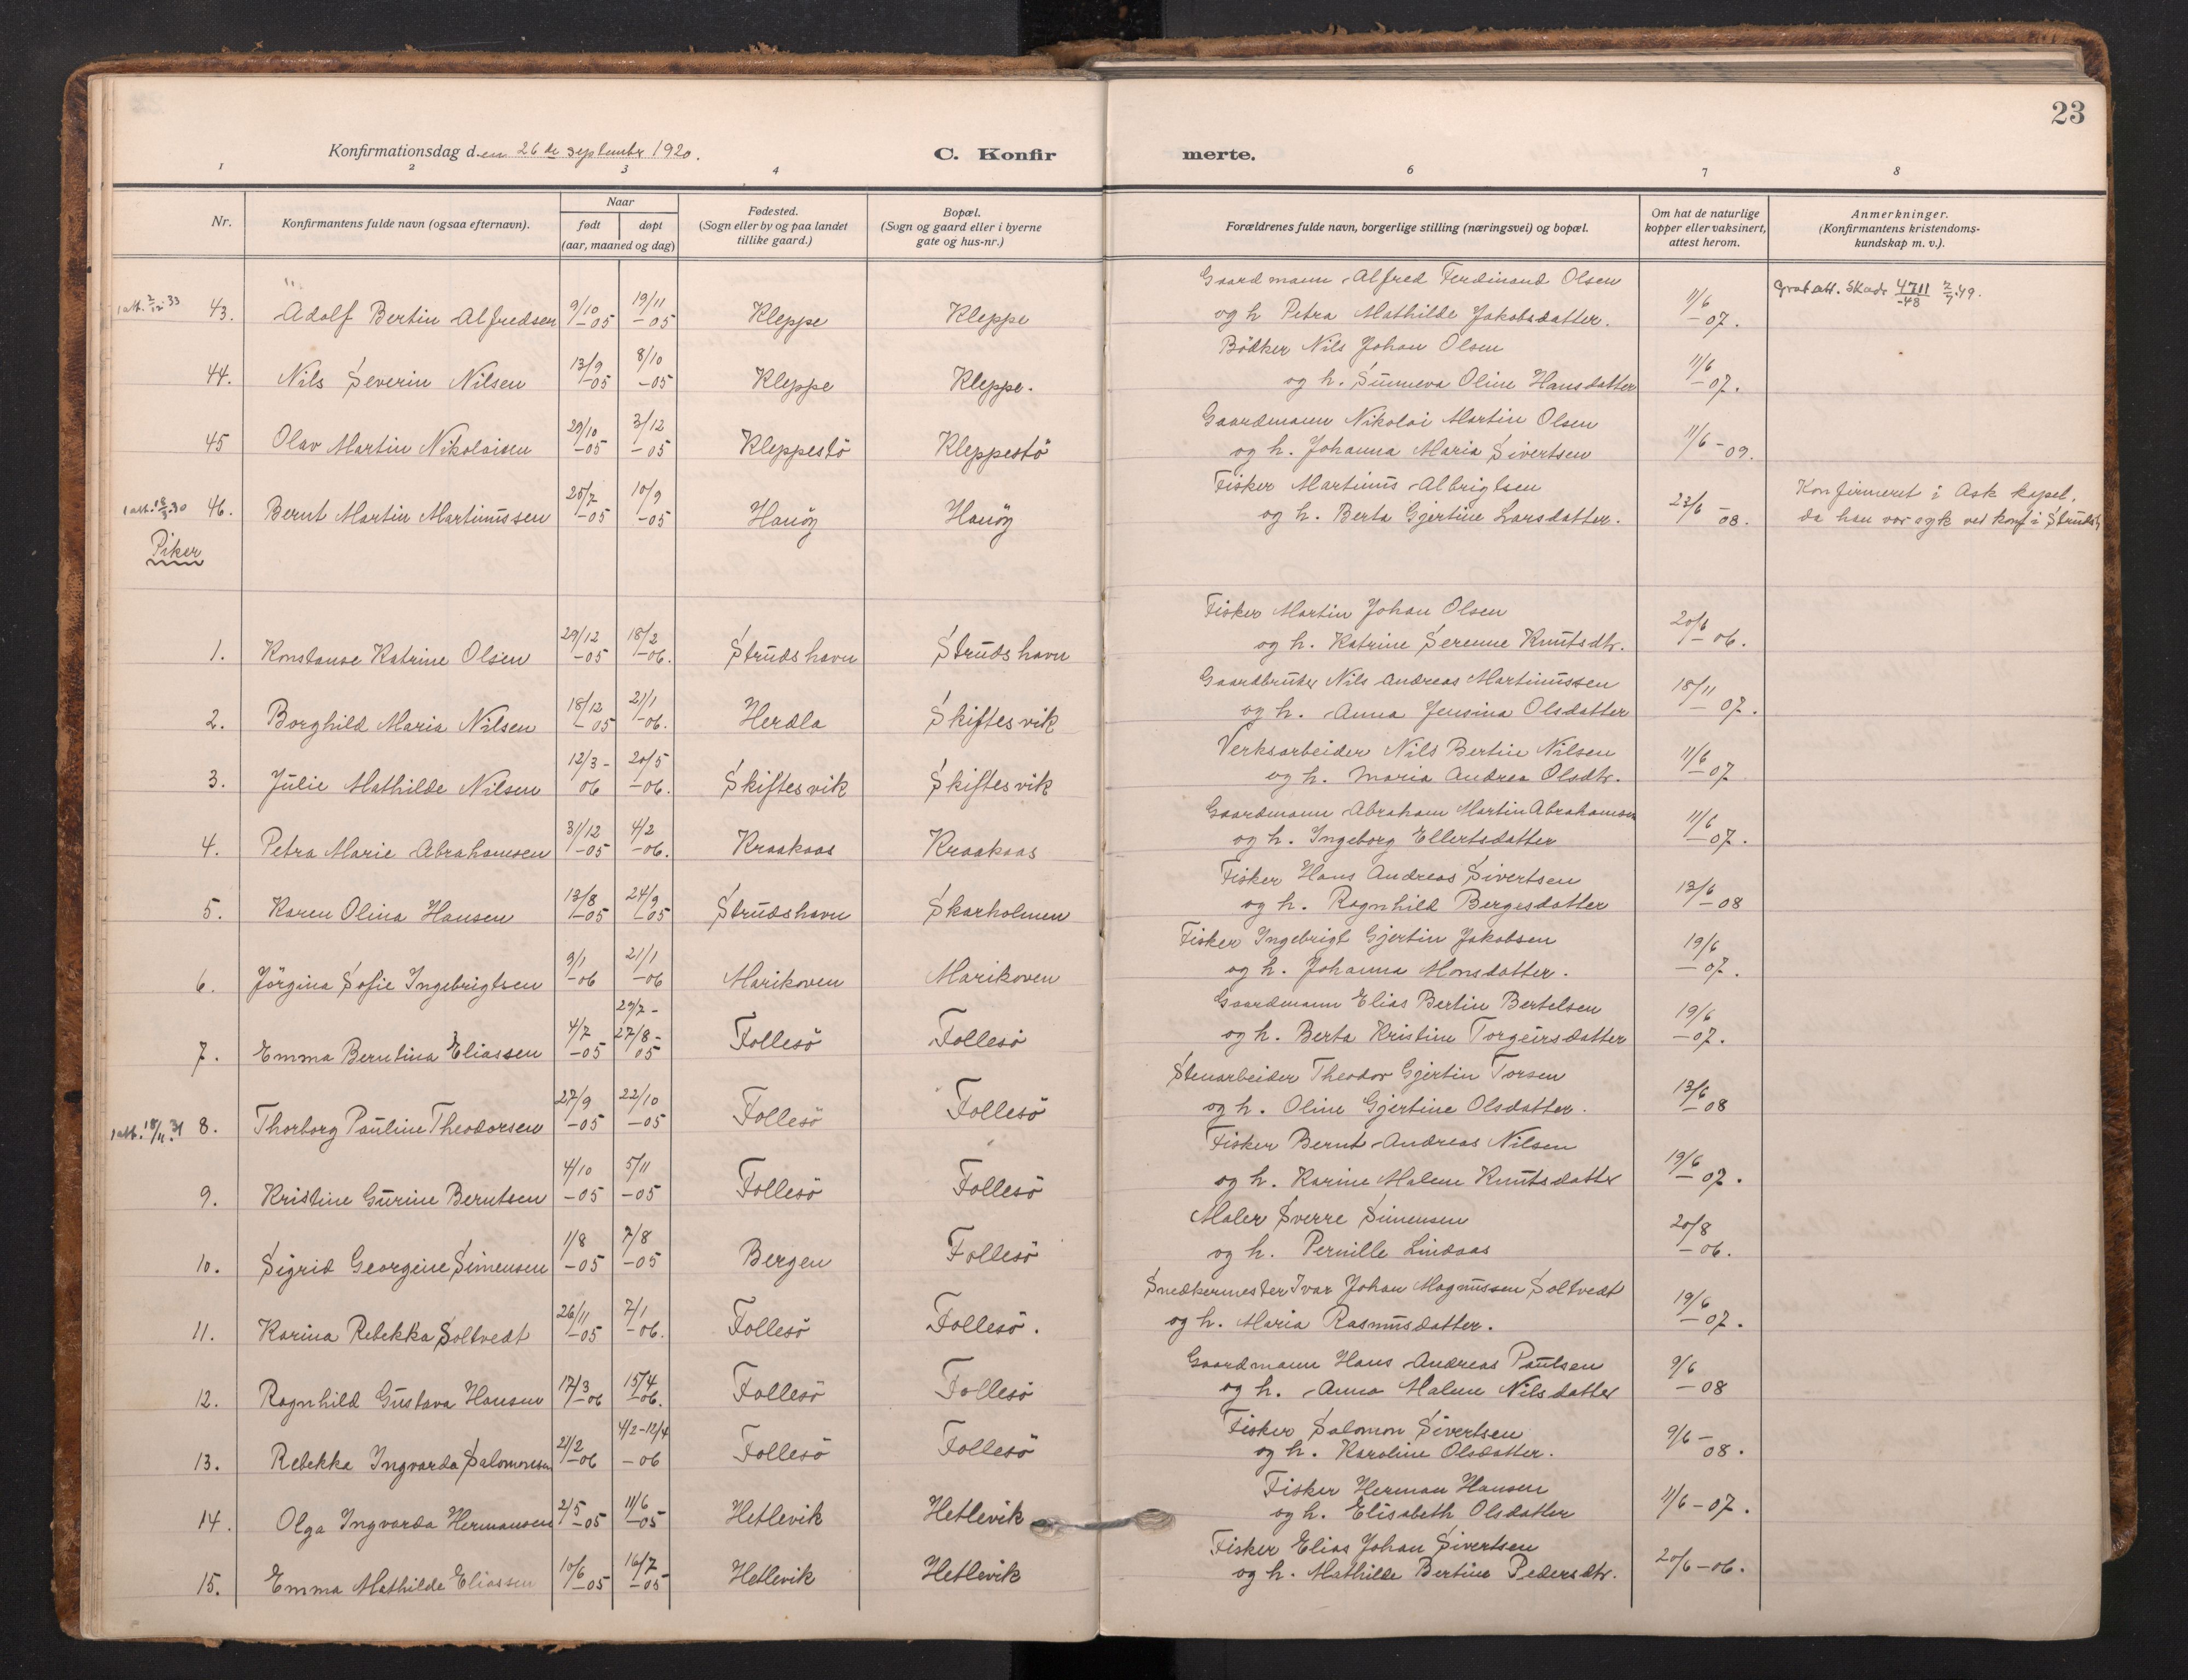 23
Konfirmationsdag den 26de september 1920.
C. Konfirmerte.
1 2 3 4 6 7 8
Nr.
Konfirmantens fulde navn (ogsaa efternavn).
Naar
født døpt
(aar, maaned og dag)
Fødested.
(Sogn eller by og paa landet
tillike gaard.)
Bopæl.
(Sogn og gaard eller i byerne
gate og hus-nr.)
Forældrenes fulde navn, borgerlige stilling (næringsvei) og bopæl.
Om hat de naturlige
kopper eller vaksinert,
attest herom.
Anmerkninger.
(Konfirmantens kristendoms-
kundskap m. v.).
Gaardmann Alfred Ferdinand Olsen
1 att. 2/12-33 43. Adolf Bertin Alfredsen 9/10-05 19/11-05 Kleppe Kleppe og h Petra Mathilde Jakobsdatter. 11/6-07. Grat att. Skadr 4711/-48 2/7.49.
Bödker Nils Johan Olsen
44. Nils Severin Nilsen 13/9-05 8/10-05 Kleppe Kleppe. og h. Sunneva Oline Hansdatter 11/6-07.
Gaardmann Nikolai Martin Olsen
45 Olav Martin Nikolaisen 29/10-05 3/12-05 Kleppestö Kleppestö og h. Johanna Maria Sivertsen 11/6-09.
Fisker Martinus Albrigtsen Konfirmeret i Ask kapel.
1 att. 18/3-30 46. Bernt Martin Martinussen 25/7-05 10/9-05 Hanöy Hanöy og h. Berta Gjertine Larsdatter. 23/6-08. da han var syk ved konf i Strudsh
Piker
Fisker Martin Johan Olsen
1. Konstanse Katrine Olsen 29/12-05 18/2-06. Strudshavn Strudshavn og h. Katrine Serenne Knutsdtr. 20/6-06.
Gaardbruker Nils Andreas Martinussen
2. Borghild Maria Nilsen 18/12-05 21/1-06. Herdla Skiftesvik og h. Anna Jensina Olsdatter 18/11-07.
Verksarbeider Nils Bertin Nilsen
3. Julie Mathilde Nilsen 12/3-06 20/5-06. Skiftesvik Skiftesvik og h. Maria Andrea Olsdtr. 11/6-07
Gaardmann Abraham Martin Abrahamsen
4. Petra Marie Abrahamsen 31/12-05 4/2-06. Kraakaas Kraakaas og h. Ingeborg Ellertsdatter 11/6-07.
Fisker Hans Andreas Sivertsen
5. Karen Olina Hansen 13/8-05 24/9-05 Strudshavn Skarholmen og h. Ragnhild Bergesdatter 13/6-08
Fisker Ingebrigt Gjertin Jakobsen
6. Jörgina Sofie Ingebrigtsen 9/1-06 21/1-06 Marikoven Marikoven og h. Johanna Monsdatter. 19/6-07.
Gaardmann Elias Bertin Bertelsen
7. Emma Berntina Eliassen 4/7-05 29/7-27/8-05 Follesö Follesö og h. Berta Kristine Torgeirsdatter 19/6-07.
Stenarbeider Theodor Gjertin Torsen
1 att. 18/11.31 8. Thorborg Pauline Theodorsen 27/9-05 22/10-05 Follesö Follesö og h. Oline Gjertine Olsdatter. 13/6-08
Fisker Bernt Andreas Nilsen
9. Kristine Gurine Berntsen 4/10-05 5/11-05 Follesö Follesö og h. Karine Malene Knutsdatter 19/6-07.
Maler Sverre Simensen
10. Sigrid Georgine Simensen 1/8-05 7/8-05 Bergen Follesö og h. Pernille Lindaas 20/8-06.
Snedkermester Ivar Johan Magnussen Soltvedt
11. Karina Rebekka Soltvedt 26/11-05 7/1-06. Follesö Follesö. og h. Maria Rasmusdatter. 19/6-07.
Gaardmann Hans Andreas Paulsen
12. Ragnhild Gustava Hansen 17/3-06 15/4-06. Follesö Follesö og h. Anna Malene Nilsdatter 9/6-08
Fisker Salomon Sivertsen
13. Rebekka Ingvarda Salomonsen 21/2-06 4/2-12/4-06 Follesö Follesö og h. Karoline Olsdatter. 9/6-08.
Fisker Herman Hansen
14. Olga Ingvarda Hermansen 2/5-05 11/6-05 Hetlevik Hetlevik og h. Elisabeth Olsdatter 11/6-07.
Fisker Elias Johan Sivertsen
15. Emma Mathilde Eliassen 10/6-05 16/7-05 Hetlevik Hetlevik og h. Mathilde Bertine Pedersdtr. 20/6-06.